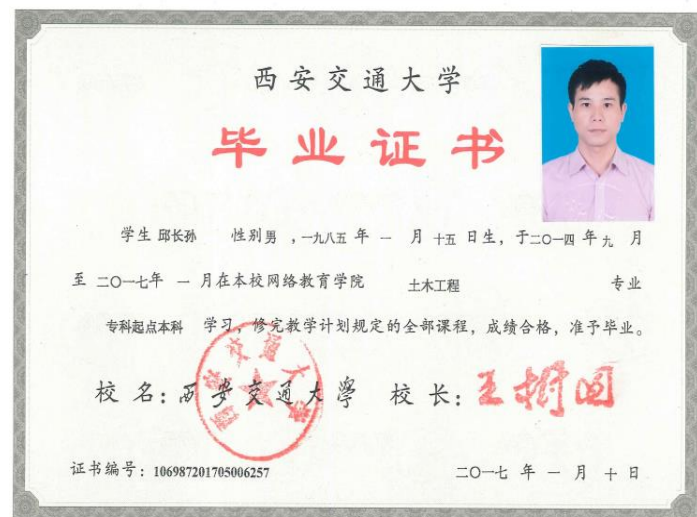 西安交通大学
毕业证书
学生 邱长孙 性别 男 ，一九八五 年 一 月 十五 日生，于二〇一四 年 九 月
至 二〇一七年 一 月在本校网络教育学院 土木工程 专业
专科起点本科 学习，修完教学计划规定的全部课程，成绩合格，准予毕业。
校 名：西安交通大學 校 长：王树国
证书编号：106987201705006257 二〇一七 年 一 月 十 日